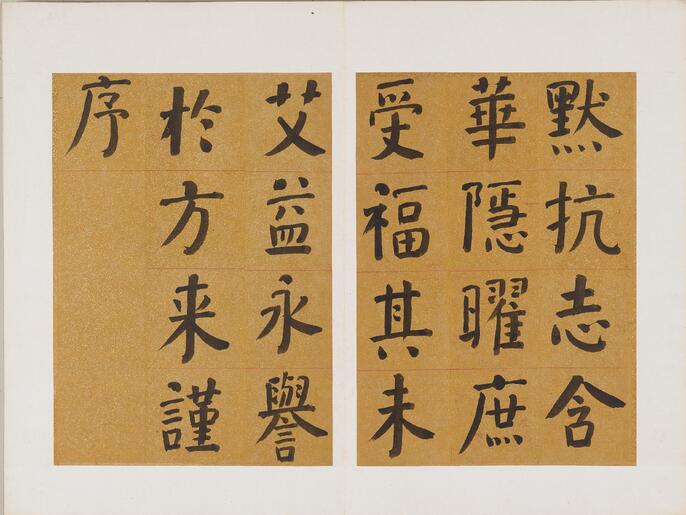 默抗志含
華隱曜庶
受福其未
艾益永譽
於方来謹
序